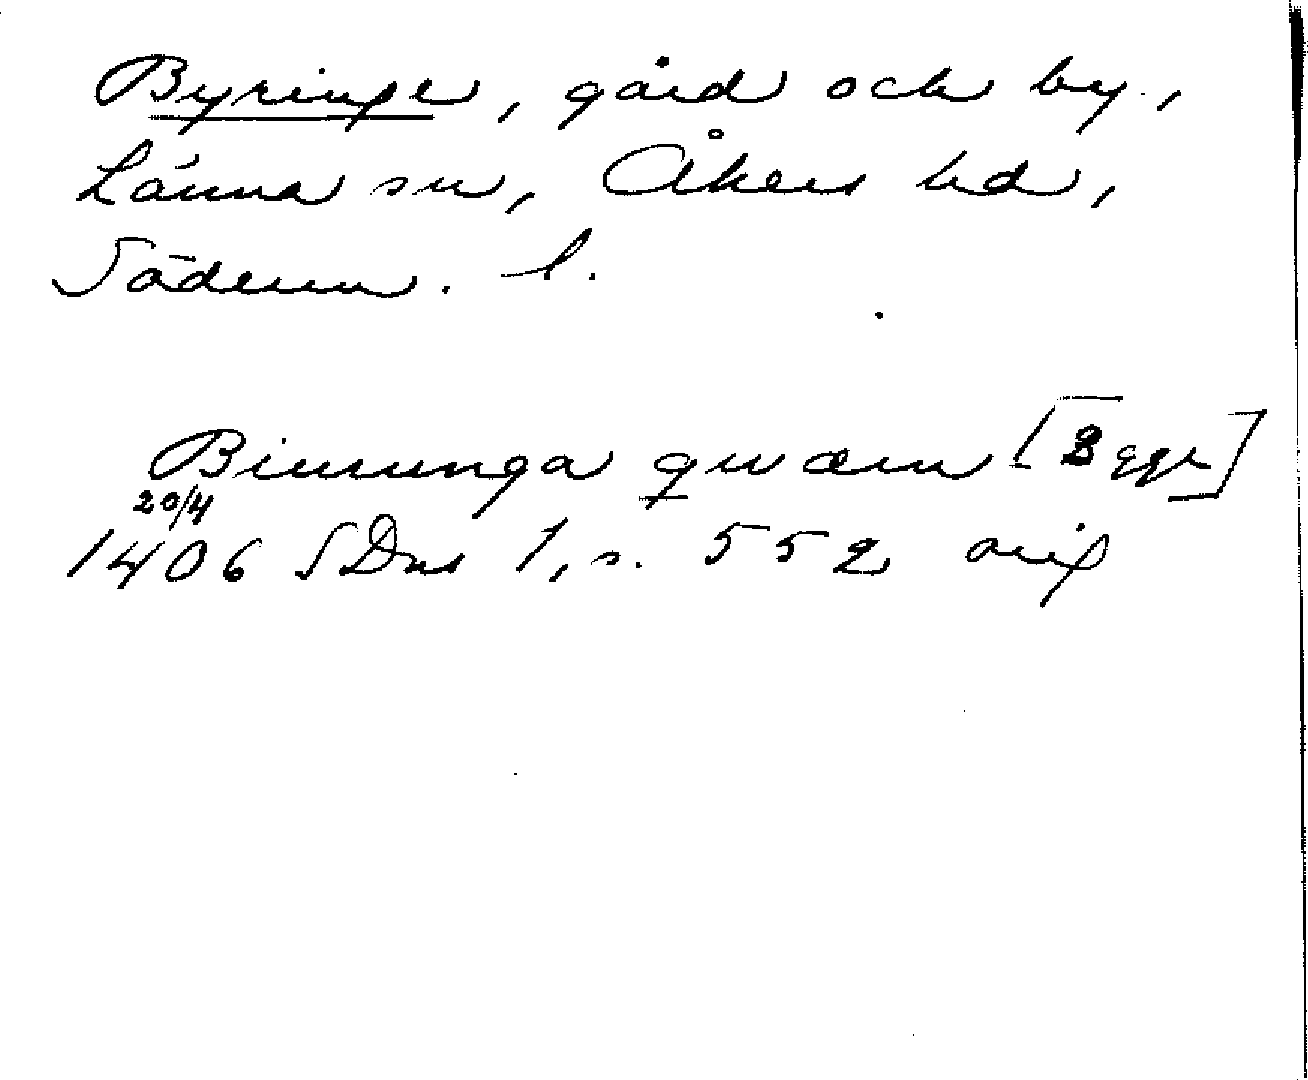 Byringe, gård och by.,
Länna sn, Åkers hd,
Söderm. l.
Birunga qwærn [3 ggr]
20/4
1406 SDns 1, s. 552 orig